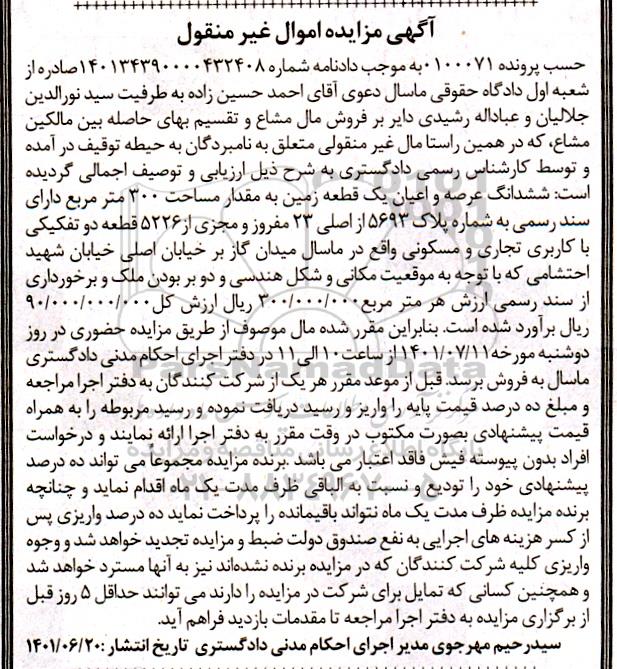 آگهی مزایده اموال غیر منقول
حسب پرونده ۰۱۰۰۰۷۱ به موجب دادنامه شماره ۱۴۰۱۳۴۳۹۰۰۰۰۴۳۲۴۰۸ صادره از
شعبه اول دادگاه حقوقی ماسال دعوی آقای احمد حسین زاده به طرفیت سید نورالدین
جلالیان و عباداله رشیدی دایر بر فروش مال مشاع و تقسیم بهای حاصله بین مالکین
مشاع، که در همین راستا مال غیر منقولی متعلق به نامبردگان به حیطه توقیف در آمده
و توسط کارشناس رسمی دادگستری به شرح ذیل ارزیابی و توصیف اجمالی گردیده
است: ششدانگ عرصه و اعیان یک قطعه زمین به مقدار مساحت ۳۰۰ متر مربع دارای
سند رسمی به شماره پلاک ۵۶۹۳ از اصلی ۲۳ مفروز و مجزی از ۵۲۲۶ قطعه دو تفکیکی
با کاربری تجاری و مسکونی واقع در ماسال میدان گاز بر خیابان اصلی خیابان شهید
احتشامی که با توجه به موقعیت مکانی و شکل هندسی و دو بر بودن ملک و برخورداری
از سند رسمی ارزش هر متر مربع ۳۰۰/۰۰۰/۰۰۰ ریال ارزش کل ۹۰/۰۰۰/۰۰۰/۰۰۰
ریال برآورد شده است. بنابراین مقرر شده مال موصوف از طریق مزایده حضوری در روز
دوشنبه مورخه ۱۴۰۱/۰۷/۱۱ از ساعت ۱۰ الی ۱۱ در دفتر اجرای احکام مدنی دادگستری
ماسال به فروش برسد. قبل از موعد مقرر هر یک از شرکت کنندگان به دفتر اجرا مراجعه
و مبلغ ده درصد قیمت پایه را واریز و رسید دریافت نموده و رسید مربوطه را به همراه
قیمت پیشنهادی بصورت مکتوب در وقت مقرر به دفتر اجرا ارائه نمایند و درخواست
افراد بدون پیوسته فیش فاقد اعتبار می باشد .برنده مزایده مجموعا می تواند ده درصد
پیشنهادی خود را تودیع و نسبت به الباقی ظرف مدت یک ماه اقدام نماید و چنانچه
برنده مزایده ظرف مدت یک ماه نتواند باقیمانده را پرداخت نماید ده درصد واریزی پس
از کسر هزینه های اجرایی به نفع صندوق دولت ضبط و مزایده تجدید خواهد شد و وجوه
واریزی کلیه شرکت کنندگان که در مزایده برنده نشده‌اند نیز به آنها مسترد خواهد شد
و همچنین کسانی که تمایل برای شرکت در مزایده را دارند می توانند حداقل ۵ روز قبل
از برگزاری مزایده به دفتر اجرا مراجعه تا مقدمات بازدید فراهم آید.
سیدرحیم مهرجوی مدیر اجرای احکام مدنی دادگستری تاریخ انتشار :۱۴۰۱/۰۶/۲۰
ParsNamadData
پایگاه اطلاع رسانی مناقصه و مزایده